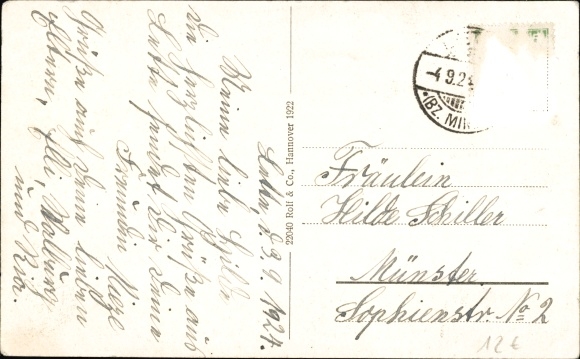 Latbr., d. 3.9.1924.
Meine liebe Hilde
Die herzlichsten Grüße aus
sendet Dir Deine
Freundin
Grüße auch Deine lieben
Eltern, Elli, Walburg
und Ria.
22040 Rolf & Co., Hannover 1922
-4 9.2
(BZ. MIN
Fräulein
Hilde Schiller
Münster.
Sophienstr. No 2
12 €